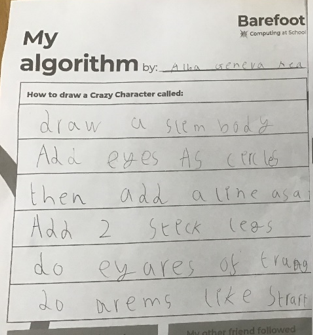 Barefoot
Computing at School
My
algorithm by: Alba
How to draw a Crazy Character called:
draw a slem body
Add eyes As circles
then add a line as a
Add 2 steck legs
do ey ares of
do arems like Strait
My other friend followed